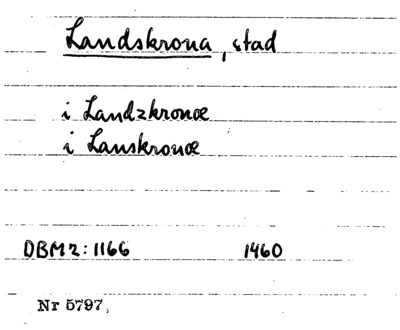 Landskrona, stad
i Landzkronæ
i Lanskronæ
DBM 2:1166 1460
Nr 5797,